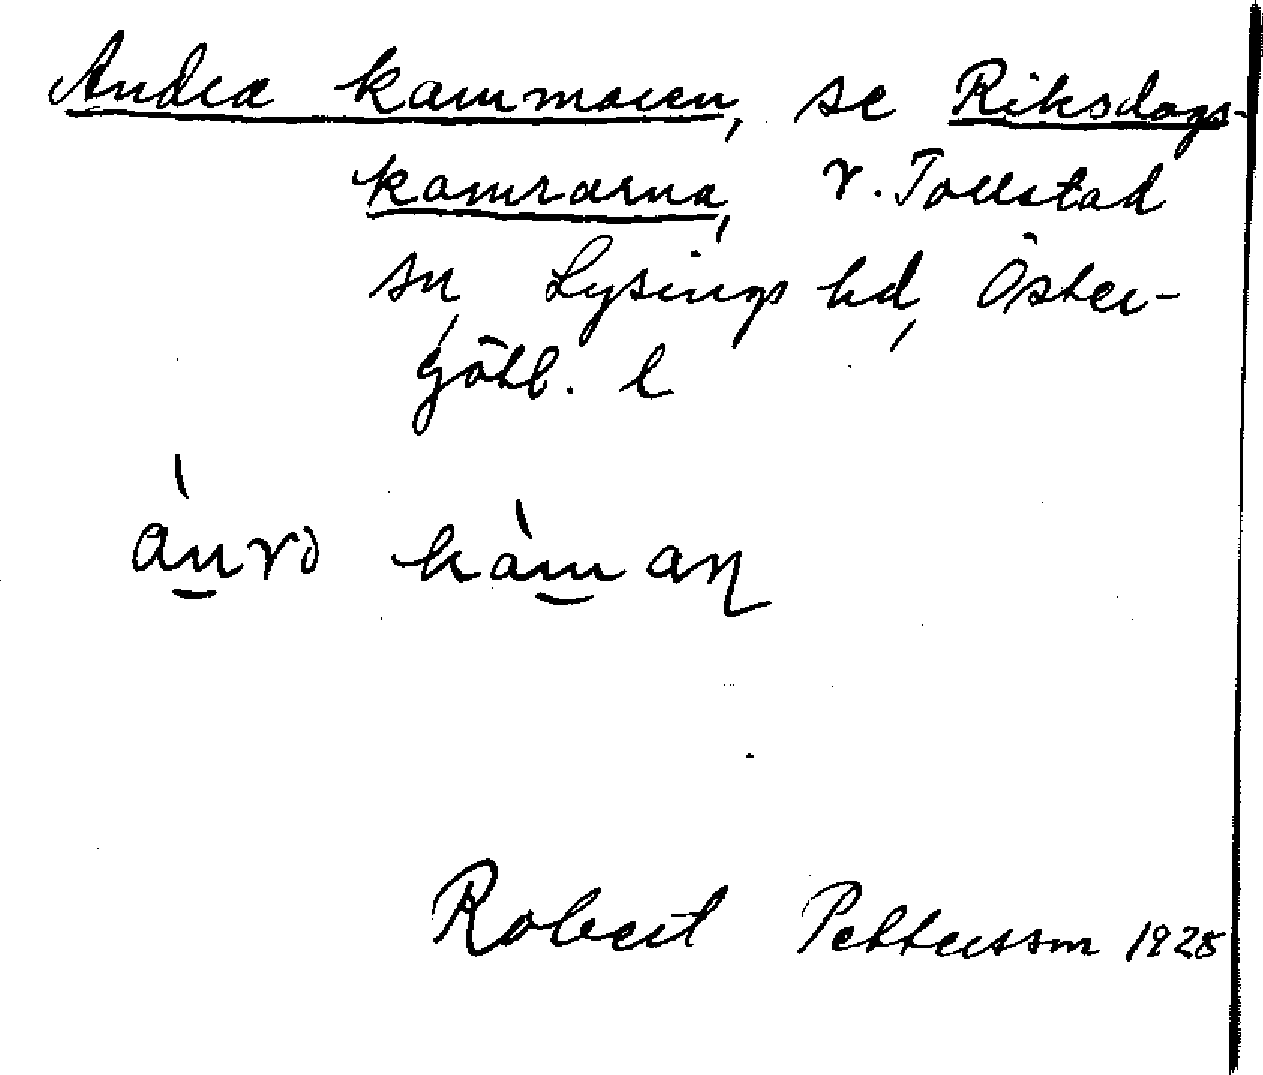 Andra kammaren, se Riksdags-
kamrarna, V. Tollstad
sn, Lysings hd, Öster-
götl. l
Robert Pettersson 1928